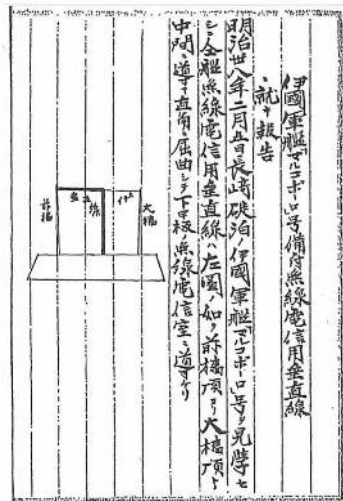 伊國軍艦「マルコポーロ」号備付無線電信用垂直線
ニ就キ報告
明治卅八年二月五日長崎碇泊ノ伊國軍艦「マルコポーロ」号ヲ見学セ
シニ全艦無線電信用垂直線ハ左圖ノ如ク前檣頂ヨリ大檣頂ト
中間ニ導キ直角ニ屈曲シテ下甲板無線電信室ニ導ケリ
大檣
垂直線
前檣